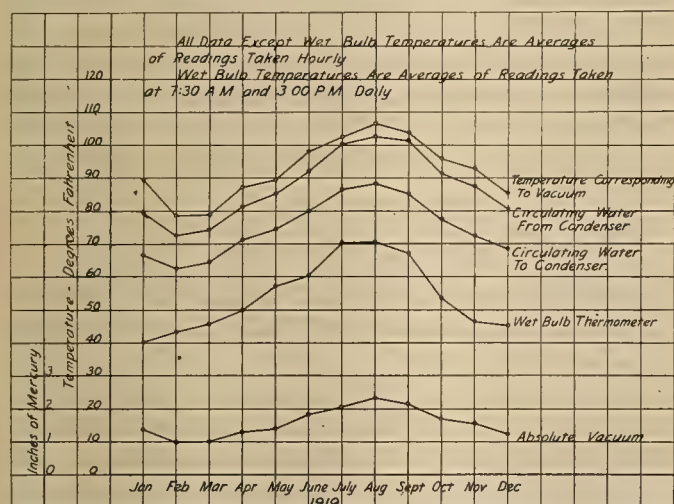 All Data Except Wet Bulb Temperatures Are Averages
of Readings Taken Hourly
Wet Bulb Temperatures Are Averages of Readings Taken
at 7:30 A M and 3:00 P M Daily
Temperature - Degrees Fahrenheit
120
110
100
90
80
70
60
50
40
30
20
10
0
Inches of Mercury
3
2
1
0
Temperature Corresponding
To Vacuum
Circulating Water
From Condenser
Circulating Water
To Condenser
Wet Bulb Thermometer
Absolute Vacuum
Jan Feb Mar Apr May June July Aug Sept Oct Nov Dec
1919